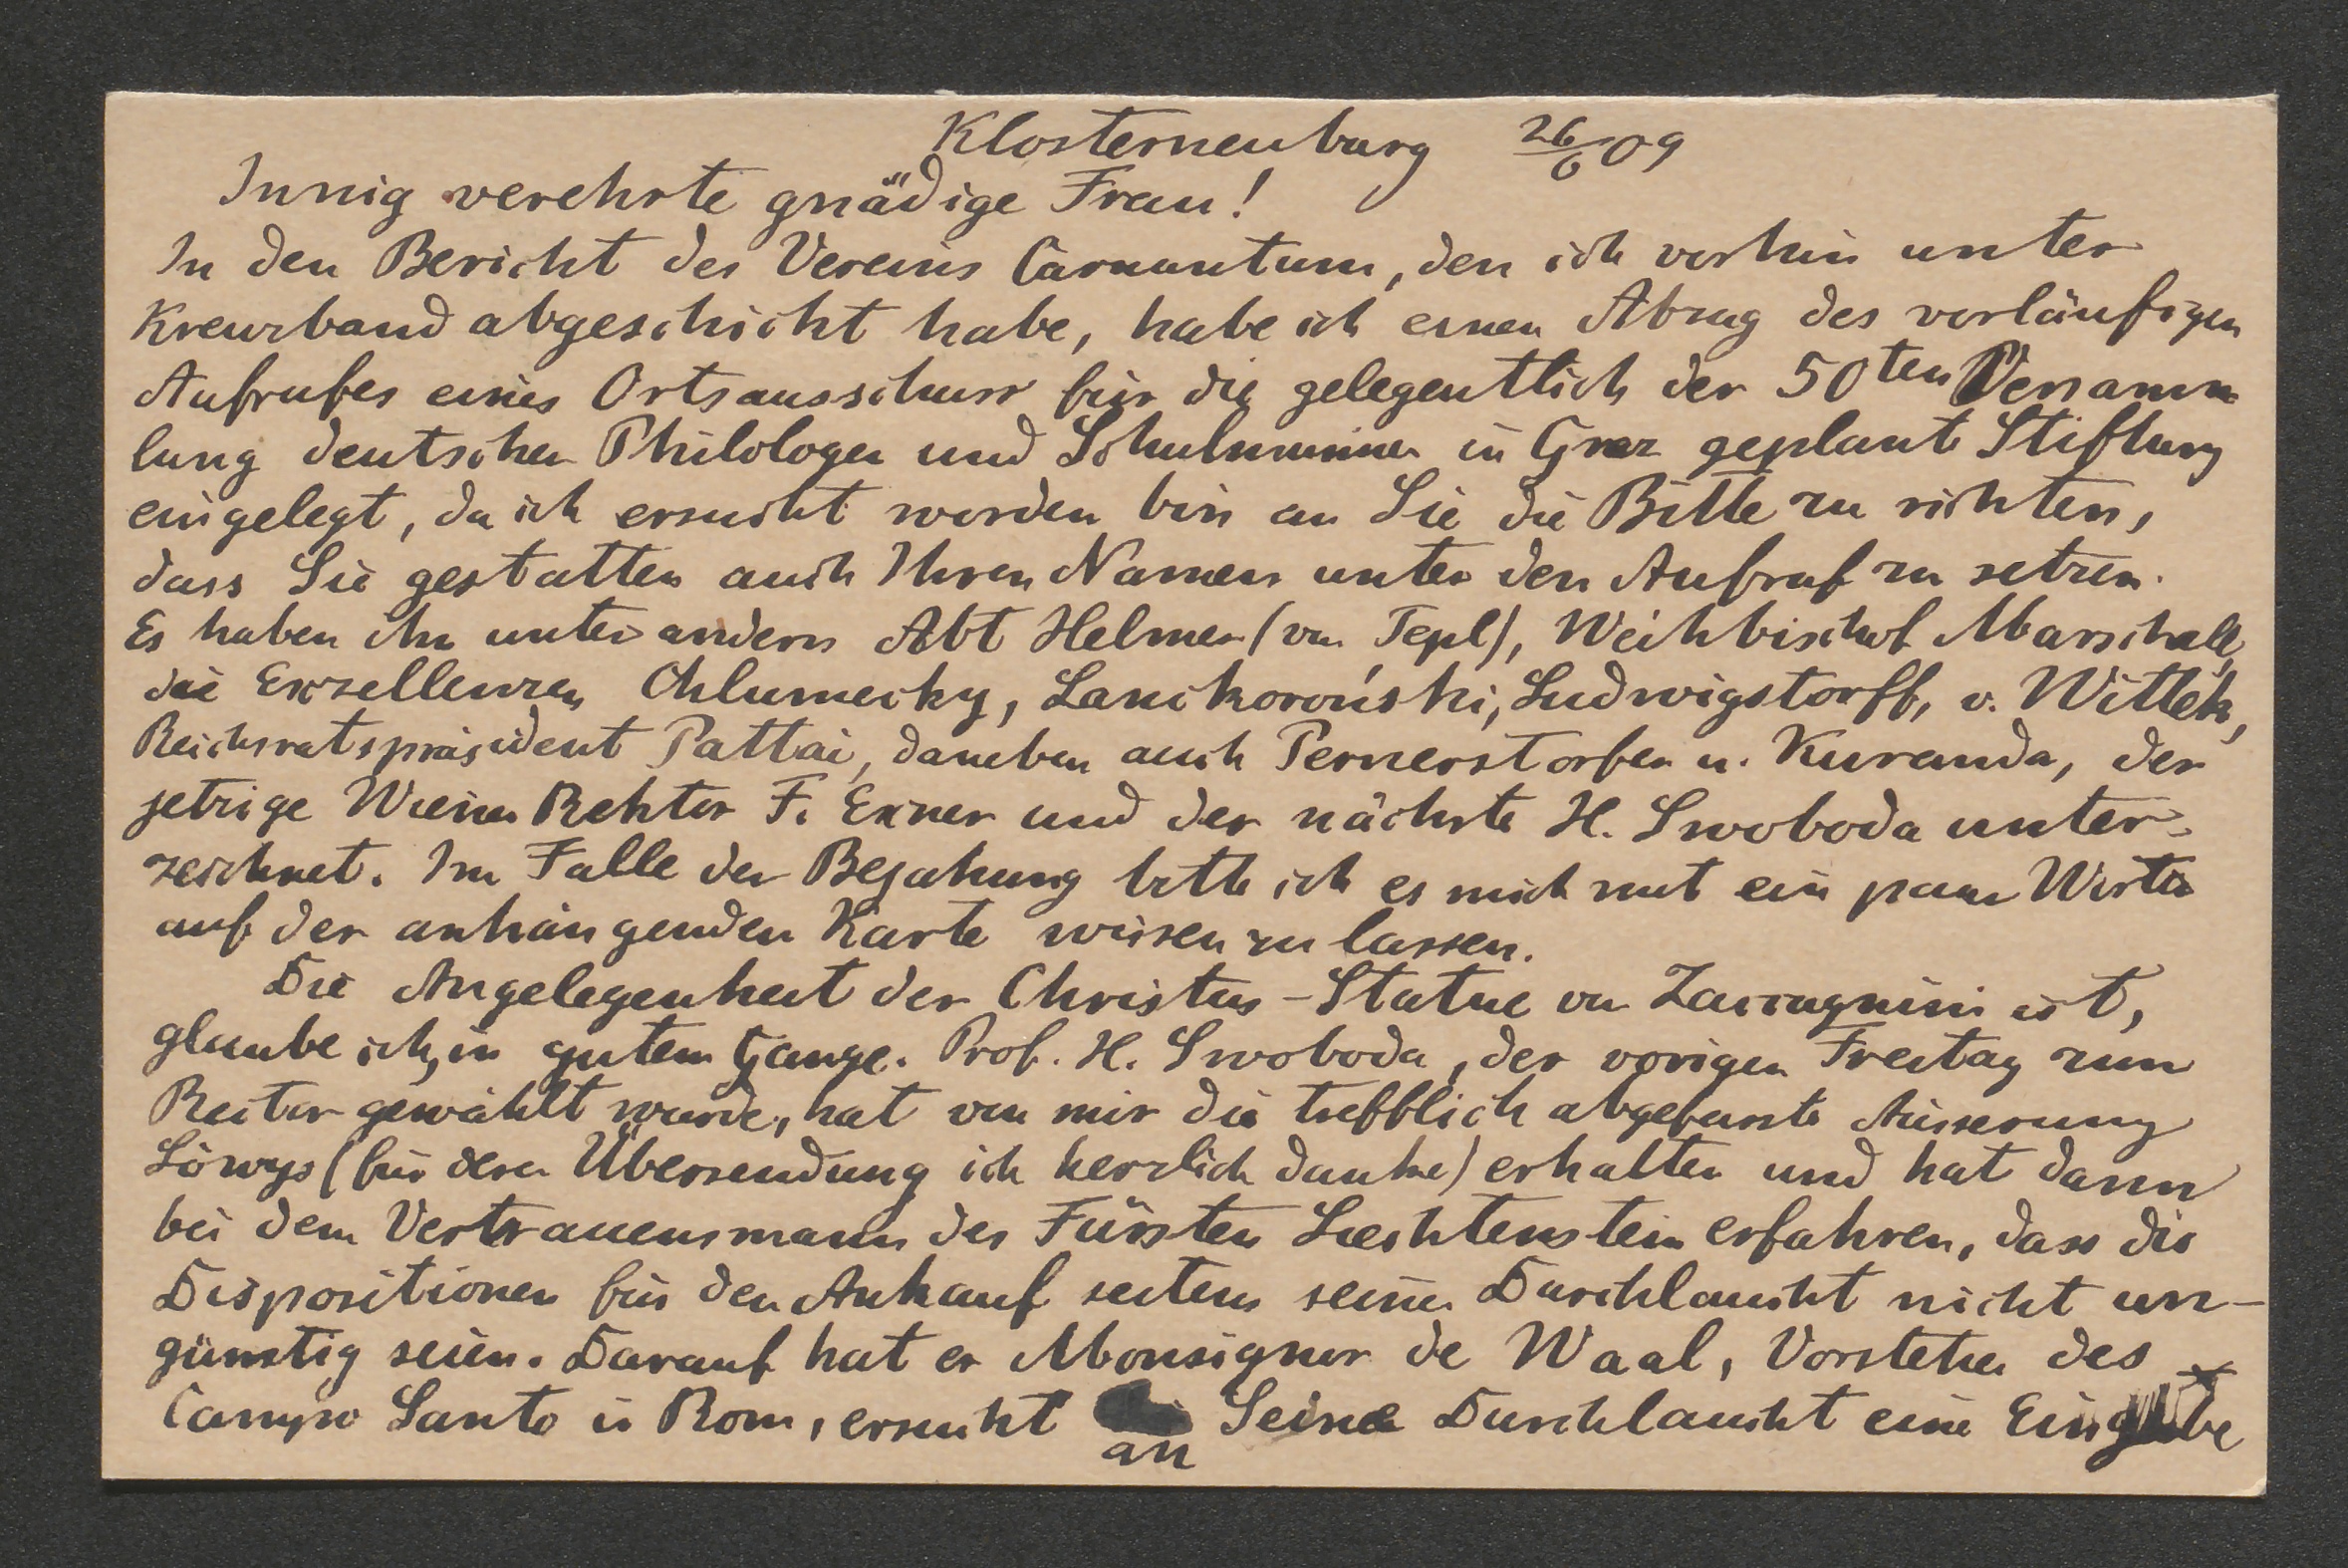 Klosterneuburg 26/6 09
Innig verehrte gnädige Frau!
In den Bericht des Vereins Carnuntum, den ich vorhin unter
Kreuzband abgeschickt habe, habe ich einen Abzug des vorläufigen
Aufrufes eines Ortsausschuss für die gelegentlich der 50ten Versamm
lung deutscher Philologen und Schulmänner in Graz geplante Stiftung
eingelegt, da ich ersucht worden bin an Sie die Bitte zu richten,
dass Sie gestatten auch Ihren Namen unter den Aufruf zu setzen.
Es haben ihn unter andern Abt Helmer (von Tepl), Weihbischof Marschall,
die Exzellenzen Chlumecky, Lanckoroński, Ludwigstorff, v. Wittek,
Reichsratspräsident Pattai, daneben auch Pernerstorfer u. Kuranda, der
jetzige Wiener Rektor F. Exner und der nächste H. Swoboda unter-
zeichnet. Im Falle der Bejahung bitte ich es mich mit ein paar Worten
auf der anhängenden Karte wissen zu lassen.
Die Angelegenheit der Christus-Statue von Zaccagnini ist,
glaube ich, in gutem Gange. Prof. H. Swoboda, der vorigen Freitag zum
Rector gewählt wurde, hat von mir die trefflich abgefasste Äusserung
Löwys (für deren Übersendung ich herzlich danke) erhalten und hat dann
bei dem Vertrauensmann des Fürsten Liechtenstein erfahren, dass die
Dispositionen für den Ankauf seitens seiner Durchlaucht nicht un-
günstig seien. Darauf hat er Monsignor de Waal, Vorsteher des
Campo Santo in Rom, ersucht an Seine Durchlaucht eine Eingabe